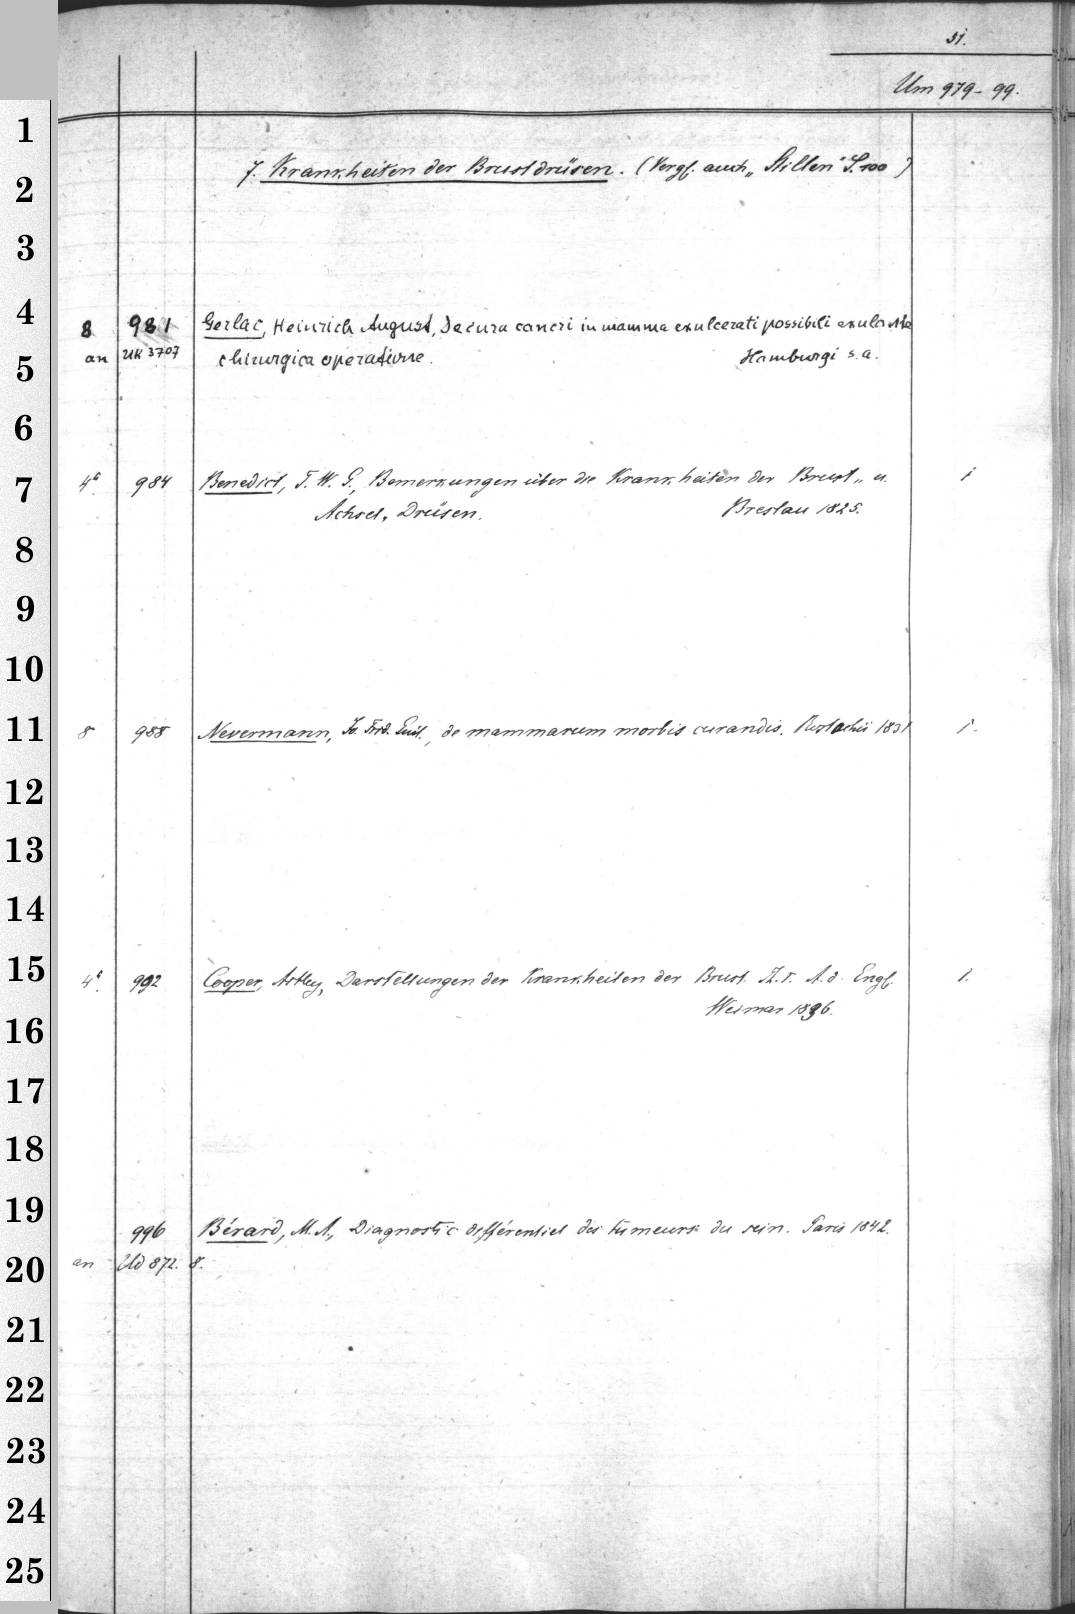 51.
Um 979-99.
1
7. Krankheiten der Brustdrüsen. (Vergl. auch „Stillen" S. 100)
2
3
4
8 981 Gerlac, Heinrich August, De cura cancri in mamma exulcerati possibili
an UK 3707 chirurgica operatione. Hamburgi s. a.
5
6
4° 984 Benedict, T. W. G., Bemerkungen über die Krankheiten der Brust- u. 1
7
Achsel-Drüsen. Breslau 1825.
8
9
10
8 988 Nevermann, Jo. Frd. Emil., de mammarum morbis curandis. Rostochii 1831 1.
11
12
13
14
4° 992 Cooper, Astley, Darstellungen der Krankheiten der Brust. A. d. Engl. 1.
15
Weimar 1836.
16
17
18
19
996 Bérard, M. A., Diagnostic différentiel des tumeurs du sein. Paris 1842.
an Ud 872. 8.
20
21
22
23
24
25